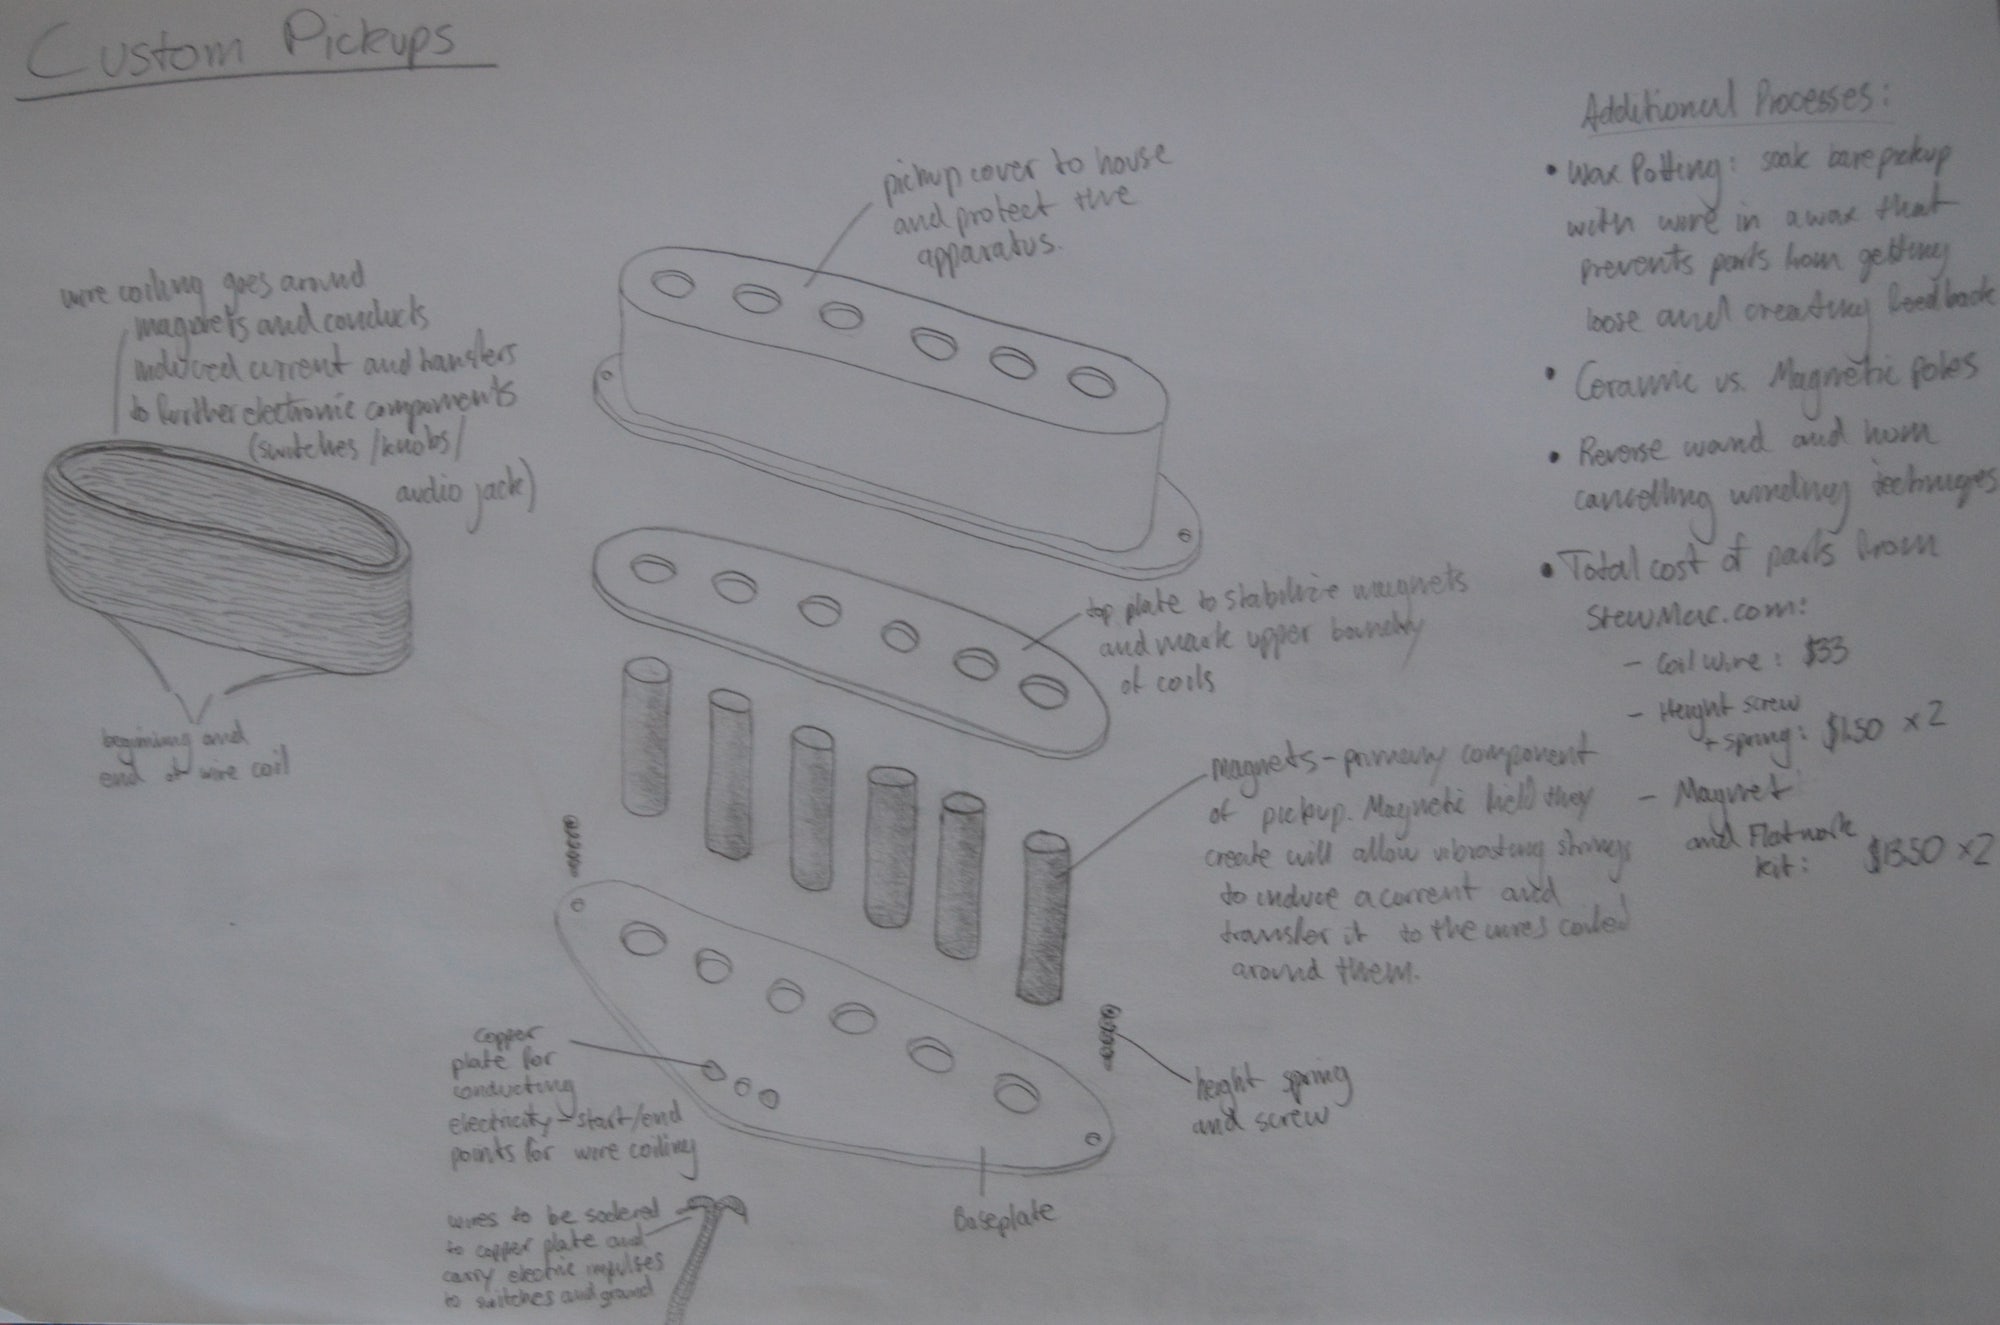 Custom Pickups
pickup cover to house
and protect the
apparatus.
wire coiling goes around
magnets and conducts
induced current and transfers
to further electronic components
(switches/knobs/
audio jack)
beginning and
end of wire coil
top plate to stabilize magnets
and mark upper boundry
of coils
magnets - primary component
of pickup. Magnetic field they
create will allow vibrating strings
to induce a current and
transfer it to the wires coiled
around them.
height spring
and screw
copper
plate for
conducting
electricity - start/end
points for wire coiling
wires to be sodered
to copper plate and
carry electric impulses
to switches and ground
Baseplate
Additional Processes:
• Wax Potting: soak bare pickup
with wire in a wax that
prevents parts from getting
loose and creating feedback
• Ceramic vs. Magnetic poles
• Reverse wand and hum
cancelling winding techniques
• Total cost of parts from
StewMac.com:
- Coil wire: $33
- Height screw
+ spring: $1.50 x2
- Magnet
and Flatwork
kit: $13.50 x2